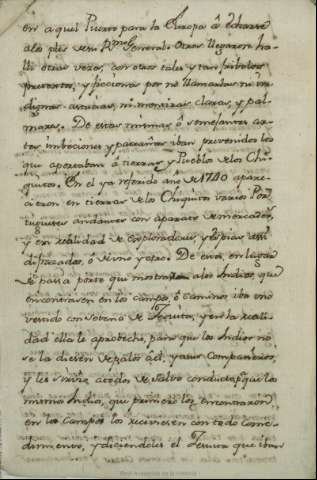 en aquel Puerto para la Europa á echarse
alos pies de su Rmo General. Otros llegaron ha
lli otras vezes, con otros tales y tan frívolos
pretextos, y ficciones por no llamarlas ni in
dignas astucias, ni mentiras claras, y pal
mares. De estas mismas ó semejantes ar
tes imbenciones y patrañas iban prevenidos los
que aportaban á tierras y Pueblos delos Chi
quitos. En el ya referido año de 1740 apare
cieron en tierras delos Chiquitos varios Por
tugueses andantes con aparato de mercaderes,
y en realidad de exploradores, y espias
disfrazados, ó de uno y otro. De estos, en lugar
de pasaporte que mostrasen alos Indios, que
encontrasen en los campos, ó caminos iba uno
vestido con sotana de Jesuita, y en la reali
dad ella le aprobechó, para que los Indios no
se la diesen de palos á él, y a sus Compañeros,
y les sirvió a todos de salvo conducto, pues los
mismos Indios, que primero los encontraron
en los Campos los recivieron con todo come
dimiento, y diciendoles el Jesuita que iban